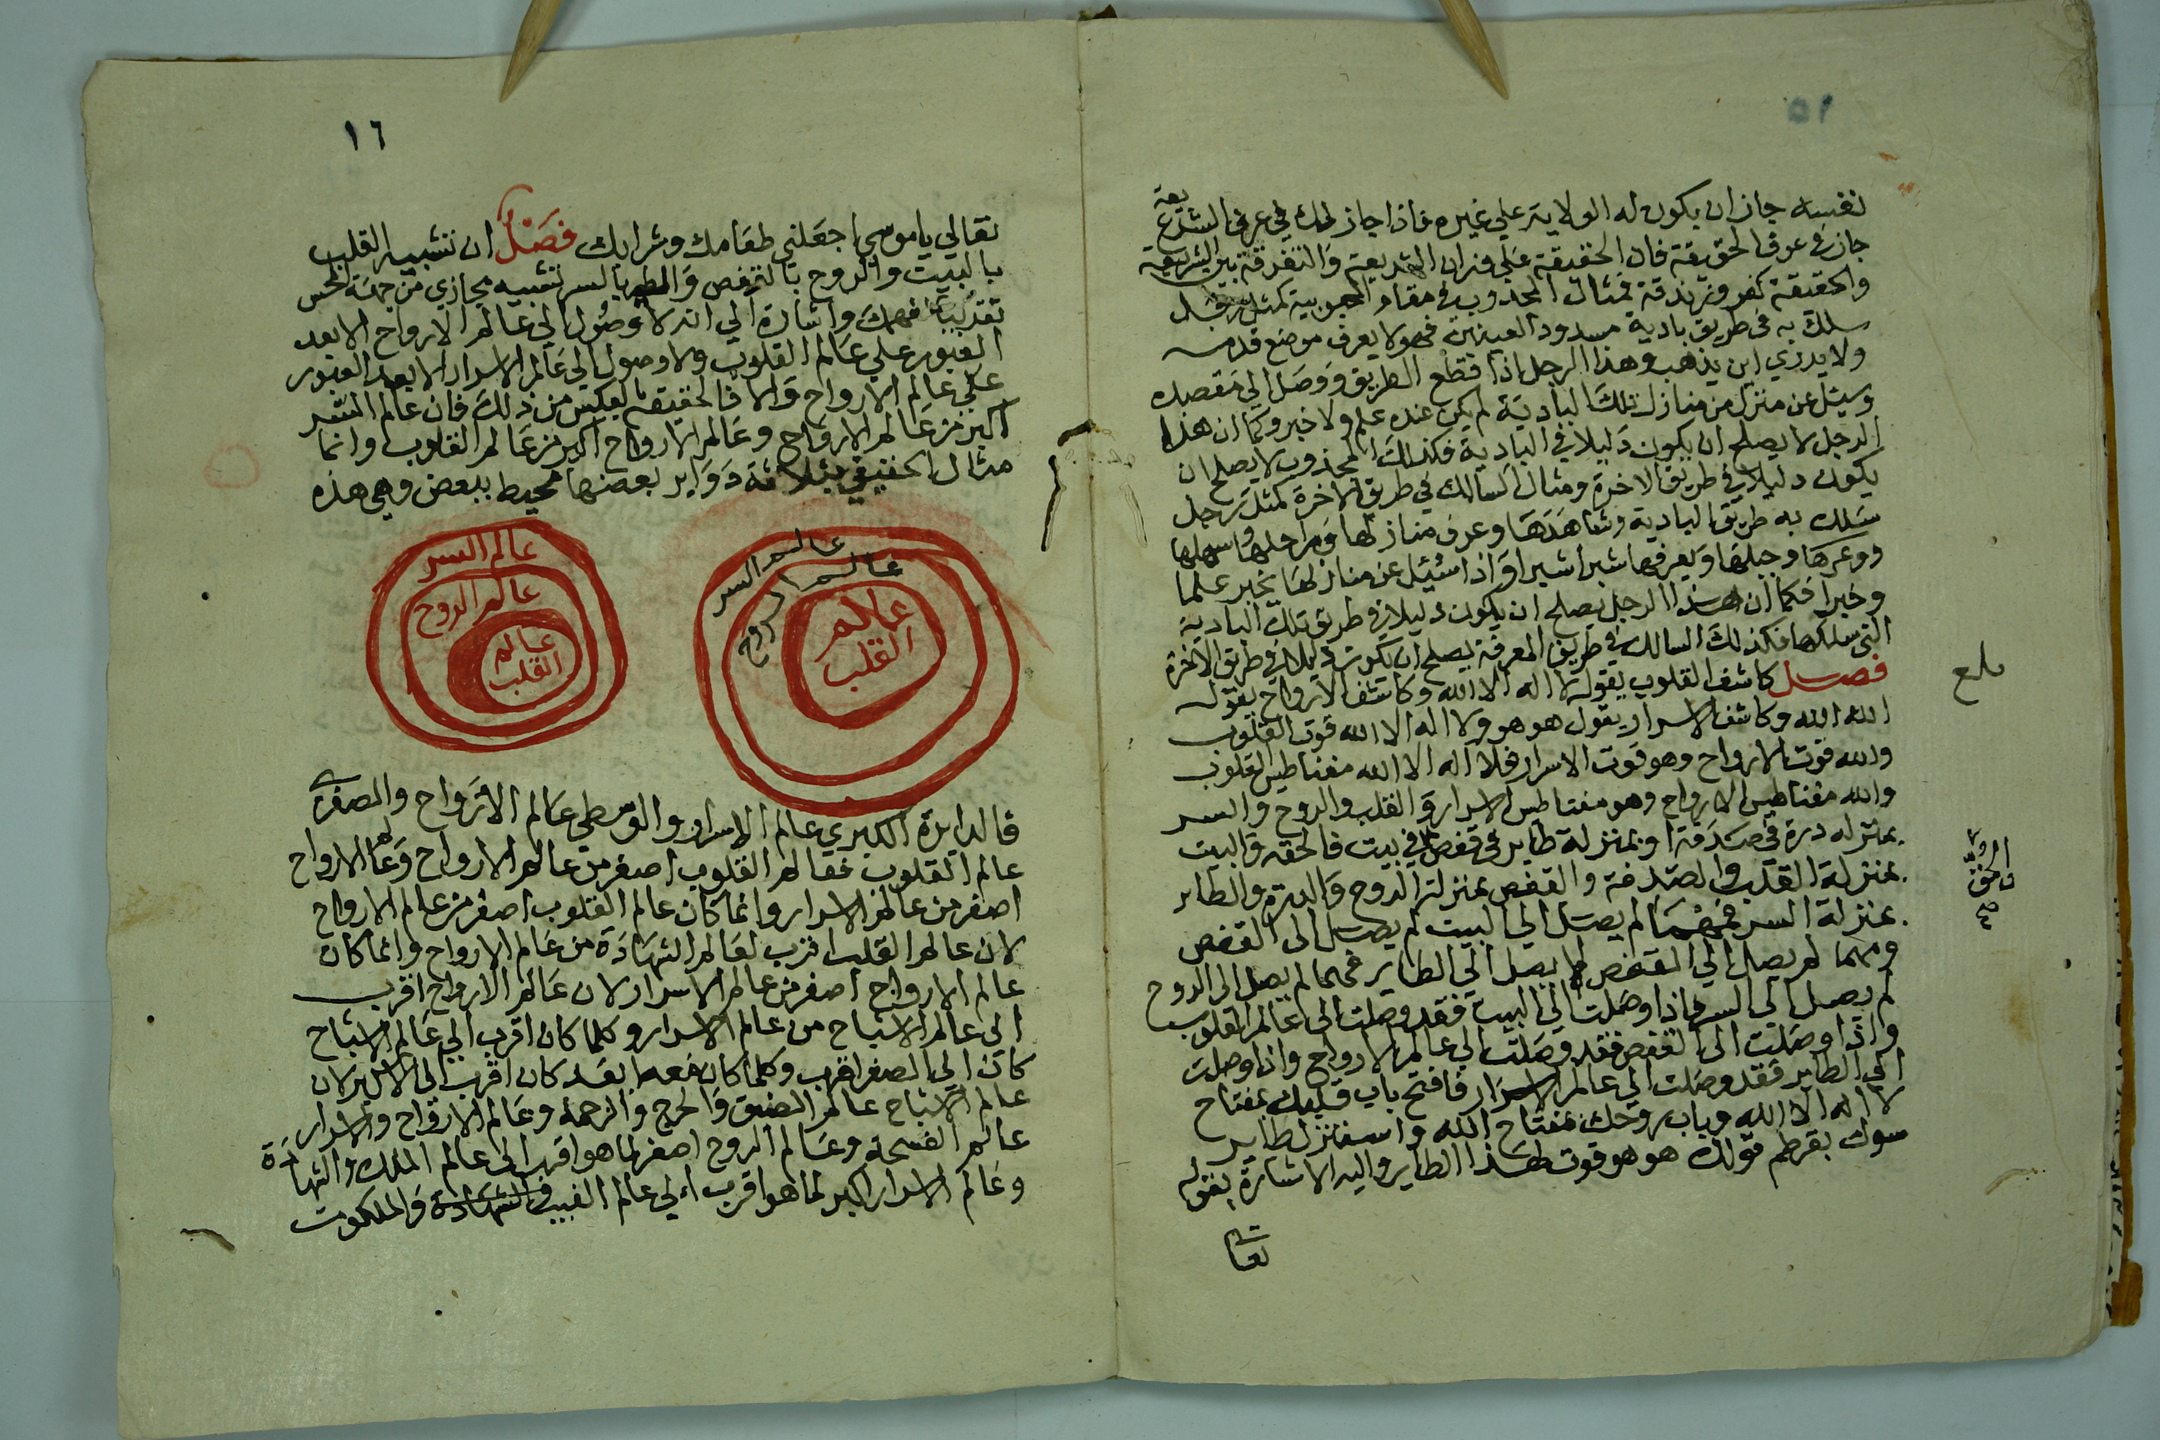 ١٥
نفسه جاز ان يكون له الولاية علي غيره فاذا جاز لك في عرف الشريعة
جاز في عرف الحقيقة فان الحقيقة علي وزان الشريعة والتفرقة بين الشريعة
والحقيقة كفر وزندقة فمثال المجذوب في مقام المحبوبية كمثل رجل
سلك به في طريق بادية مسدود العينين فهو لا يعرف موضع قدمه
ولا يدري اين يذهب وهذا الرجل اذا قطع الطريق ووصل الي مقصده
وسئل عن منزل من منازل تلك البادية لم يكن عنده علم ولا خبر وكما ان هذا
الرجل لا يصلح ان يكون دليلا في البادية فكذلك المجذوب لا يصلح ان
يكون دليلا في طريق الاخرة ومثال السالك في طريق الاخرة كمثل رجل
سلك به طريق البادية وشاهدها وعرف منازلها ومراحلها وسهلها
ووعرها وجبلها ويعرفها شبرا شبرا واذا سئل عن منازلها يخبر علما
وخبرا فكما ان هذا الرجل يصلح ان يكون دليلا في طريق تلك البادية
التي سلكها فكذلك السالك في طريق المعرفة يصلح ان يكون دليلا في طريق الاخرة
فصل كاشف القلوب يقول لا اله الا الله وكاشف الارواح يقول
الله الله وكاشف الاسرار يقول هو هو ولا اله الا الله قوت القلوب
والله قوت الارواح وهو قوت الاسرار فلا اله الا الله مغناطيس القلوب
والله مغناطيس الارواح وهو مغناطيس الاسرار والقلب والروح والسر
بمنزله درة في صدفة او بمنزلة طاير في قفص في بيت فالحقه والبيت
بمنزلة القلب والصدفة والقفص بمنزلة الروح والدرة والطاير
بمنزلة السر فمهما لم يصل الي البيت لم يصل الى القفص
ومهما لم يصل الي القفص لم يصل الي الطاير فمهما لم يصل الى الروح
لم يصل الى السر فاذا وصلت الي البيت فقد وصلت الى عالم القلوب
واذا وصلت الى القفص فقد وصلت الي عالم الارواح واذا وصلت
الي الطاير فقد وصلت الي عالم الاسرار فافتح باب قلبك بمفتاح
لا اله الا الله وباب روحك بمفتاح الله واستنزل طاير
سرك بقرطم قولك هو هو قوت لهذا الطاير واليه الاشارة بقوله
تعا
بلغ
١٦
تعالي يا موسي اجعلني طعامك وشرابك فصل ان تشبيه القلب
بالبيت والروح بالقفص والطير بالسر تشبيه مجازي من جهة الحس
تقريبا فهمك واشارة الي انه لا وصول الي عالم الارواح الا بعد
العبور علي عالم القلوب ولا وصول الي عالم الاسرار الا بعد العبور
علي عالم الارواح والا فالحقيقة بعكس من ذلك فان عالم السر
اكبر من عالم الارواح وعالم الارواح اكبر من عالم القلوب وانما
مثال الحقيقي بثلاثة دواير بعضها محيط ببعض وهي هذه
عالم السر
عالم الروح
عالم
القلب
عالم السر
عالم الروح
عالم
القلب
فالدايرة الكبري عالم الاسرار والوسطي عالم الارواح والصغري
عالم القلوب فعالم القلوب اصغر من عالم الارواح وعالم الارواح
اصغر من عالم الاسرار وانما كان عالم القلوب اصغر من عالم الارواح
لان عالم القلب اقرب لعالم الشهادة من عالم الارواح وانما كان
عالم الارواح اصغر من عالم الاسرار لان عالم الارواح اقرب
الى عالم الاشباح من عالم الاسرار وكلما كان اقرب الي عالم الاشباح
كان الي الصغر اقرب وكلما كان معه ابعد كان اقرب الى الاكبر لان
عالم الاشباح عالم الضيق والحرج والزحمة وعالم الارواح والاسرار
عالم الفسحة وعالم الروح اصغر لما هو اقرب الى عالم الملك والشهادة
وعالم الاسرار اكبر لما هو اقرب الي عالم الغيب والملكوت